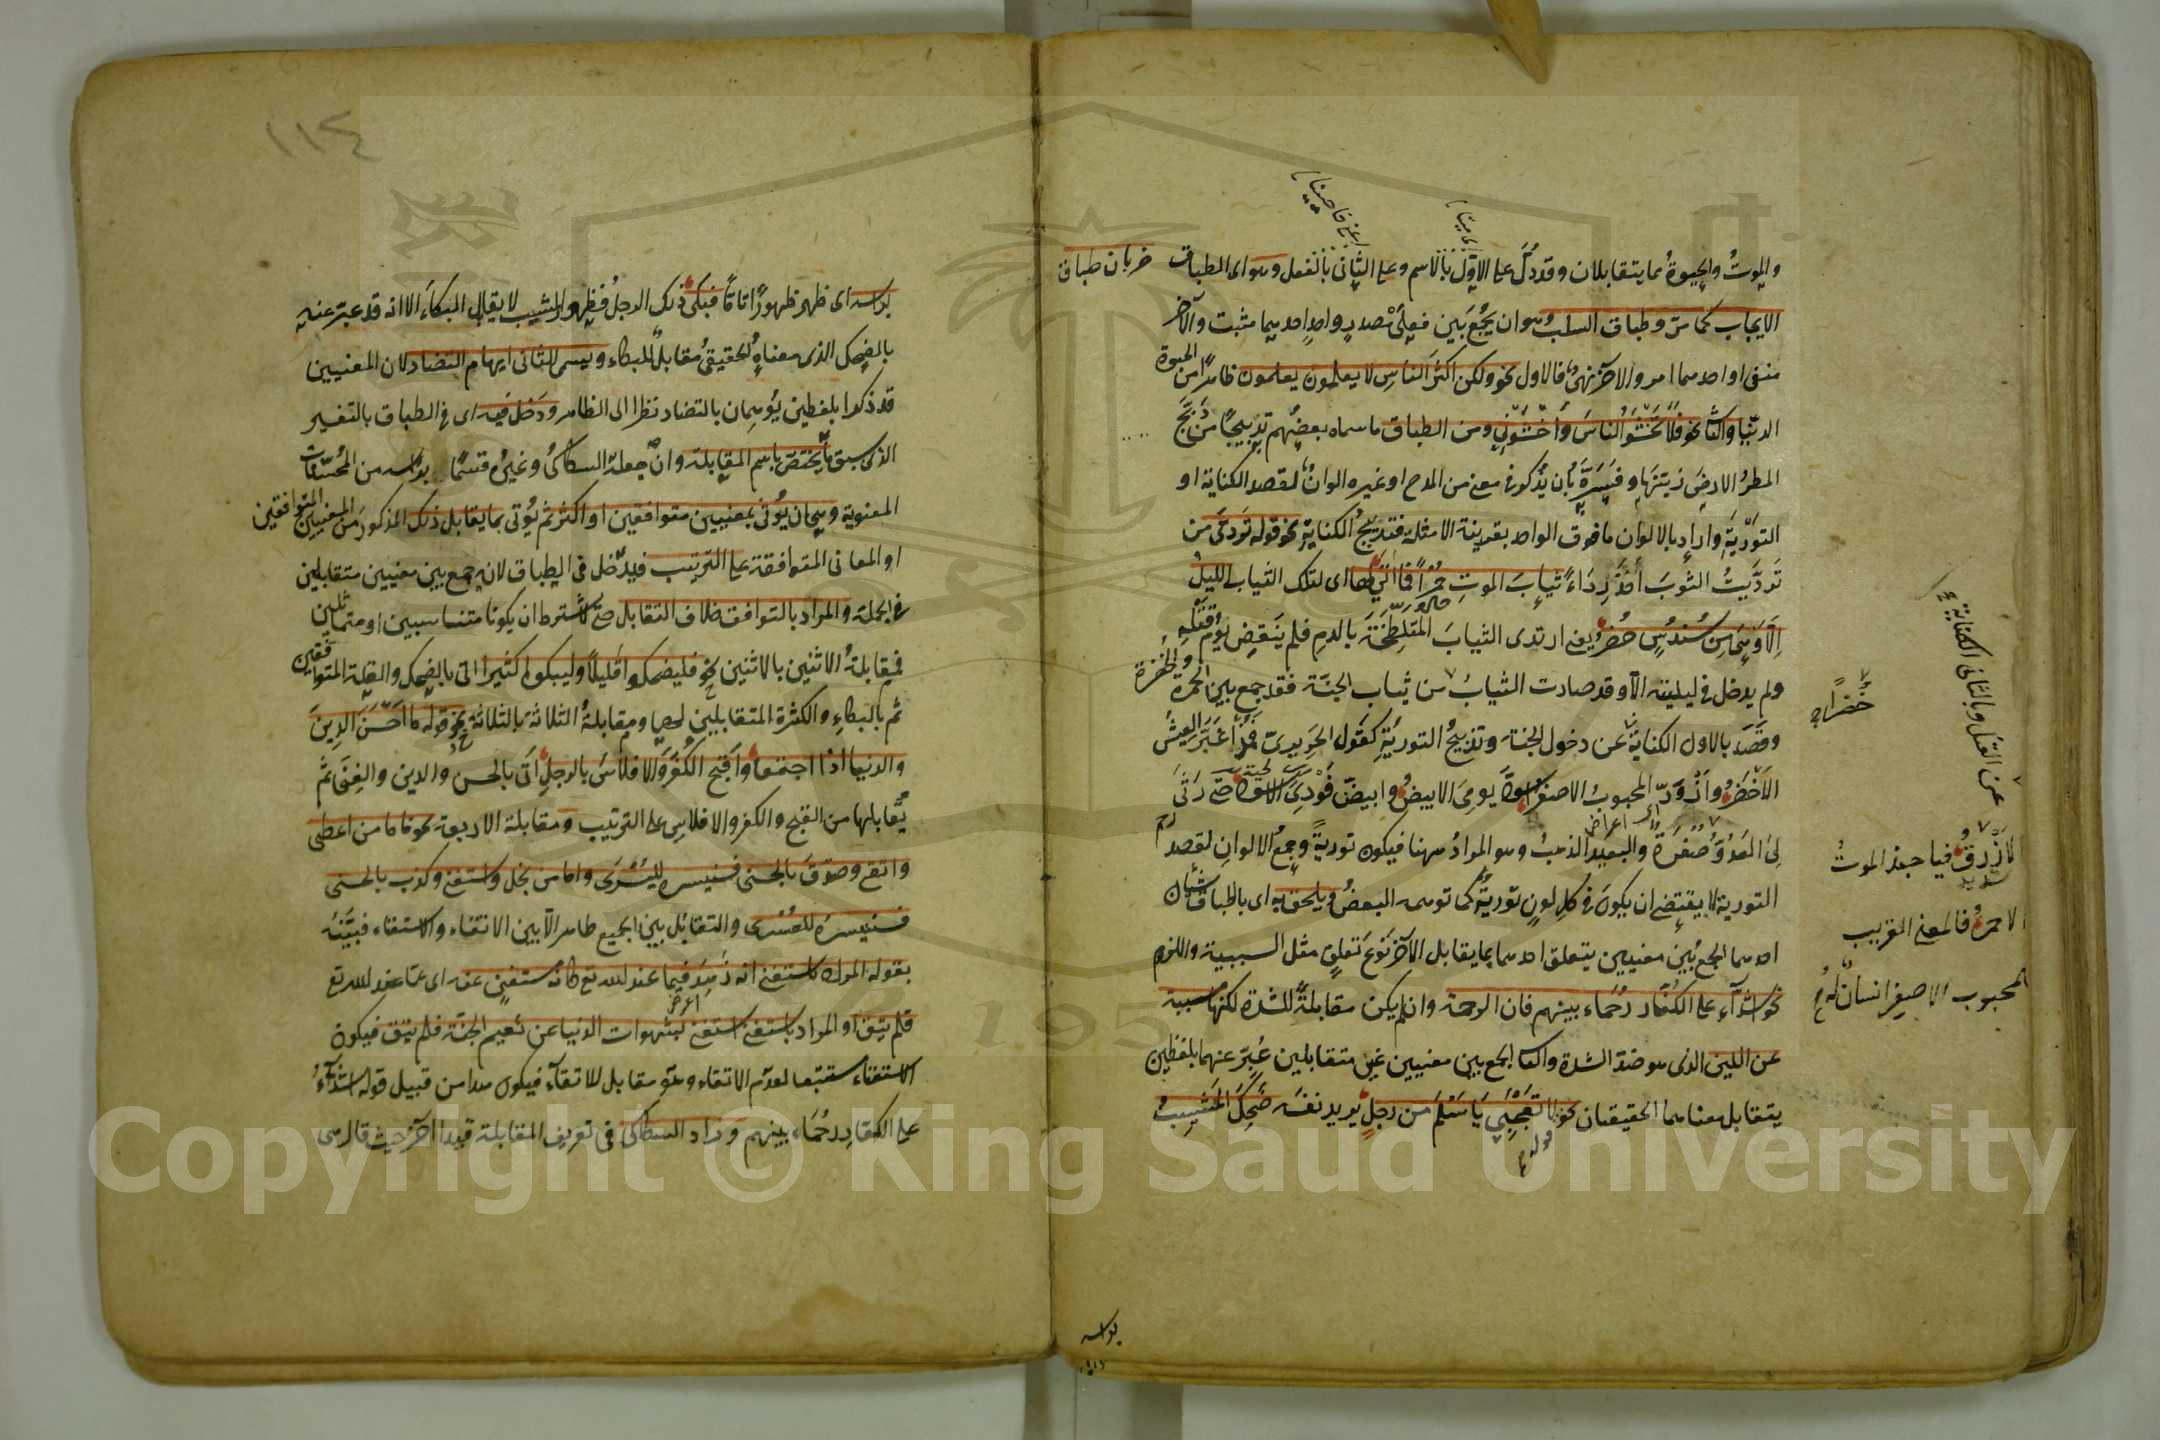 والموتُ والحيوةُ مما يتقابلان وقد دلّ على الاول بالاسم وعلى الثانى بالفعل وهو اى الطباق ضربان طباق
الايجاب كما مرّ وطباق السلب وهو ان يُجمَع بين فعلَىْ مصدرٍ واحدٍ احدهما مثبت والآخر
منفى او احدهما امر والآخر نهىٌ فالاول نحو ولكن اكثَرَ الناسِ لا يعلمون يعلمون ظاهرًا من الحيوة
الدنيا والثانى نحو فلا تَخْشَوُا الناسَ وَاخْشَوْنِى ومن الطباق ما سماه بعضُهم تدبيجًا من دَبَّجَ
المطرُ الارضَ زيّنَها وفَسَّرَه بأن يُذكر فى معنى من المدح او غيره الوانٌ لقصد الكناية او
التورية واراد بالالوان ما فوق الواحد بقرينة الامثلة فتدبيجُ الكناية نحو قوله تَرَدّى من
تَرَدَّيتُ الثوبَ أخذته رداءً ثيابَ الموتِ حُمْرًا فما اتى لها اى لتلك الثياب الليلُ
اِلّا وَهِىَ مِن سُندُسٍ خُضْرٌ يعنى ارتدى الثيابَ المتلطّخةَ بالدم فلم ينقض يومُ قتله
ولم يدخل فى ليلته الّا وقد صارت الثيابُ من ثياب الجنّة فقد جمع بين الحمرة والخضرة
وقصد بالاول الكناية عن دخول الجنة وتدبيجُ التورية كقول الحريرى فمذ اغبَرَّ العيشُ
الاَخْضَرُ وازْوَرَّ المحبوبُ الاصفر اسودَّ يومى الابيضُ وابيضّ فَوْدِىَ الاسود حتى رَثَى
لى العدوّ صُفرَةٌ والبعيد الذهبُ وهو المرادُ ههنا فيكون توريةً وجمعُ الالوان لقصد
التورية لا يقتضى ان يكون فى كل لونٍ توريةٌ كما توهمه البعضُ ويلحق به اى بالطباق شيئان
احدهما الجمع بين معنيين يتعلق احدهما بما يقابل الآخر نَوعَ تعلقٍ مثل السببية واللزوم
نحو اشدّآء على الكفّار رُحَماء بينهم فان الرحمة وان لم يكن مقابلةً للشدة لكنها مسببة
عن اللين الذى هو ضد الشدة والثانى الجمع بين معنيين غير متقابلين عُبِّرَ عنهما بلفظين
يتقابل معناهما الحقيقيان نحو لا تعجَبِى يا سَلْمَ من رجلٍ يريد نفسَه ضَحِكَ المَشِيبُ
خُضْرًا
عن القتل وبالثانى الكناية
الازرقُ فيا حبذا الموتُ
الاحمرُ فالمعنى القريب
للمحبوب الاصفر انسانٌ له
برأسه
١١٤
برأسه اى ظهر ظهورًا تامًّا فبكى ذلك الرجلُ فظهور المشيب لا يقابل البكآءَ الا انه قد عبّر عنه
بالضحك الذى معناه الحقيقىُّ مقابلٌ للبكاء ويسمى الثانى ايهام التضاد لان المعنيين
قد ذكرا بلفظين يُوهِمان بالتضاد نظرا الى الظاهر ودَخلَ فيه اى فى الطباق بالتفسير
الذى سبق ما يختصّ باسم المقابلة وانْ جعلَه السكاكىُّ وغيرُه قسمًا برأسه من المُحسِّنات
المعنوية وهى ان يُؤتى بمعنيين متوافقين او اكثر ثم يُؤتى بما يقابل ذلك المذكور من المعنيين المتوافقين
او المعانى المتوافقة على الترتيب فيدخل فى الطباق لانه جمع بين معنيين متقابلين
فى الجملة والمراد بالتوافق خلاف التقابل حتى لا يشترط ان يكونا متناسبين او متماثلين
فمقابلةُ الاثنين بالاثنين نحو فليضحكوا قليلًا وليبكوا كثيرا اتى بالضحك والقلة المتوافقين
ثم بالبكاءِ والكثرة المتقابلين لهما ومقابلةُ الثلاثة بالثلاثة نحو قوله ما احْسَنَ الدينَ
والدنيا اذا اجتمعا واَقبَحَ الكُفرَ والافلاسَ بالرجلِ اتى بالحسن والدين والغِنَى ثم
يُقابلها من القبح والكفر والافلاسِ على الترتيب ومقابلة الاربعة نحو فاما من اعطى
واتقى وصدّق بالحسنى فسنيسره لليُسْرَى واما من بخل واستغنى وكذب بالحسنى
فسنيسره للعُسْرى والتقابُل بين الجميع ظاهر الا بين الاتقاء والاستغناء فبيّنَه
بقوله المراد باستغنى انه زَهِدَ فيما عند الله تع كانه مستغنٍ عنه اى عمّا عند الله تع
فلم يتق او المراد باستغنى استغنى بشهوات الدنيا عن نعيم الجنّة فلم يتق فيكون
الاستغناء مستتبعا لعدم الاتقاء وهو مقابل للاتقآء فيكون هذا من قبيل قوله اشدّآءُ
على الكفّارِ رُحَمَاء بينهم وزاد السكاكى فى تعريف المقابلة قيدا آخَرَ حيث قال هى